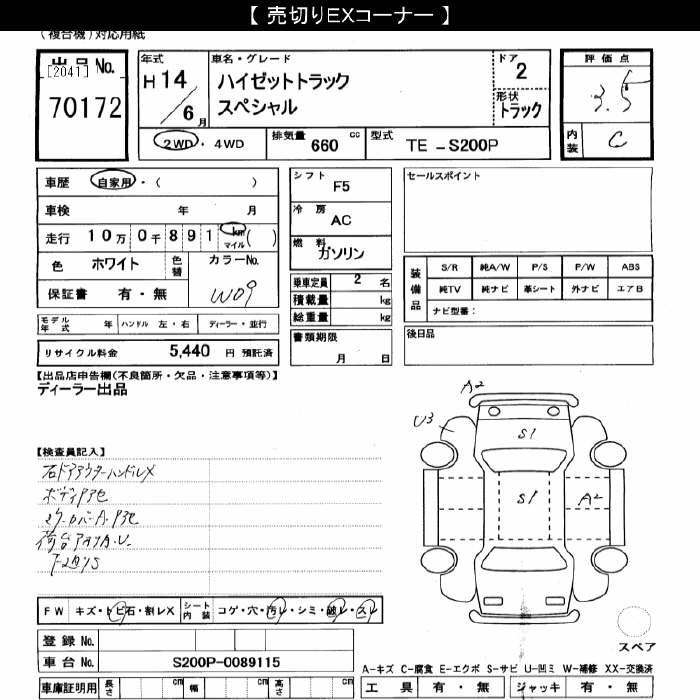 【 売切りEXコーナー 】
(複合機)対応用紙
出品No.
[2041]
70172
年式
H14
6月
車名・グレード
ハイゼットトラック
スペシャル
ドア
2
形状
トラック
評価点
3.5
内装
C
2WD・4WD
排気量 660 cc
型式 TE-S200P
車歴 自家用・( )
車検 年 月
走行 10万0千891 km マイル ( )
色 ホワイト 色替
カラーNo.
W09
保証書 有・無
シフト
F5
冷房
AC
燃料
ガソリン
乗車定員 2 名
積載量 kg
総重量 kg
書類期限
月 日
セールスポイント
装備品
S/R 純A/W P/S P/W ABS
純TV 純ナビ 革シート 外ナビ エアB
ナビ型番:
後日品
モデル年式 年 ハンドル 左・右 ディーラー・並行
リサイクル料金 5,440 円 預託済
【出品店申告欄(不良箇所・欠品・注意事項等)】
ディーラー出品
【検査員記入】
右ドアアウターハンドルX
A2
U3
S1
S1
A2
FW キズ・トビ石・割レX
シート内装 コゲ・穴・汚レ・シミ・破レ・スレ
登録 No.
車台 No. S200P-0089115
車庫証明用 長さ cm 幅 cm 高さ cm
スペア
A-キズ C-腐食 E-エクボ S-サビ U-凹ミ W-補修 XX-交換済
工具 有・無 ジャッキ 有・無